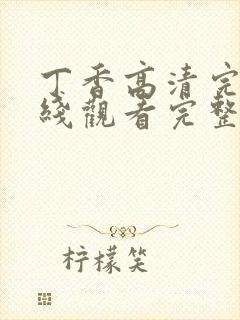 丁香高清完
綫觀看完整
柠檬笑